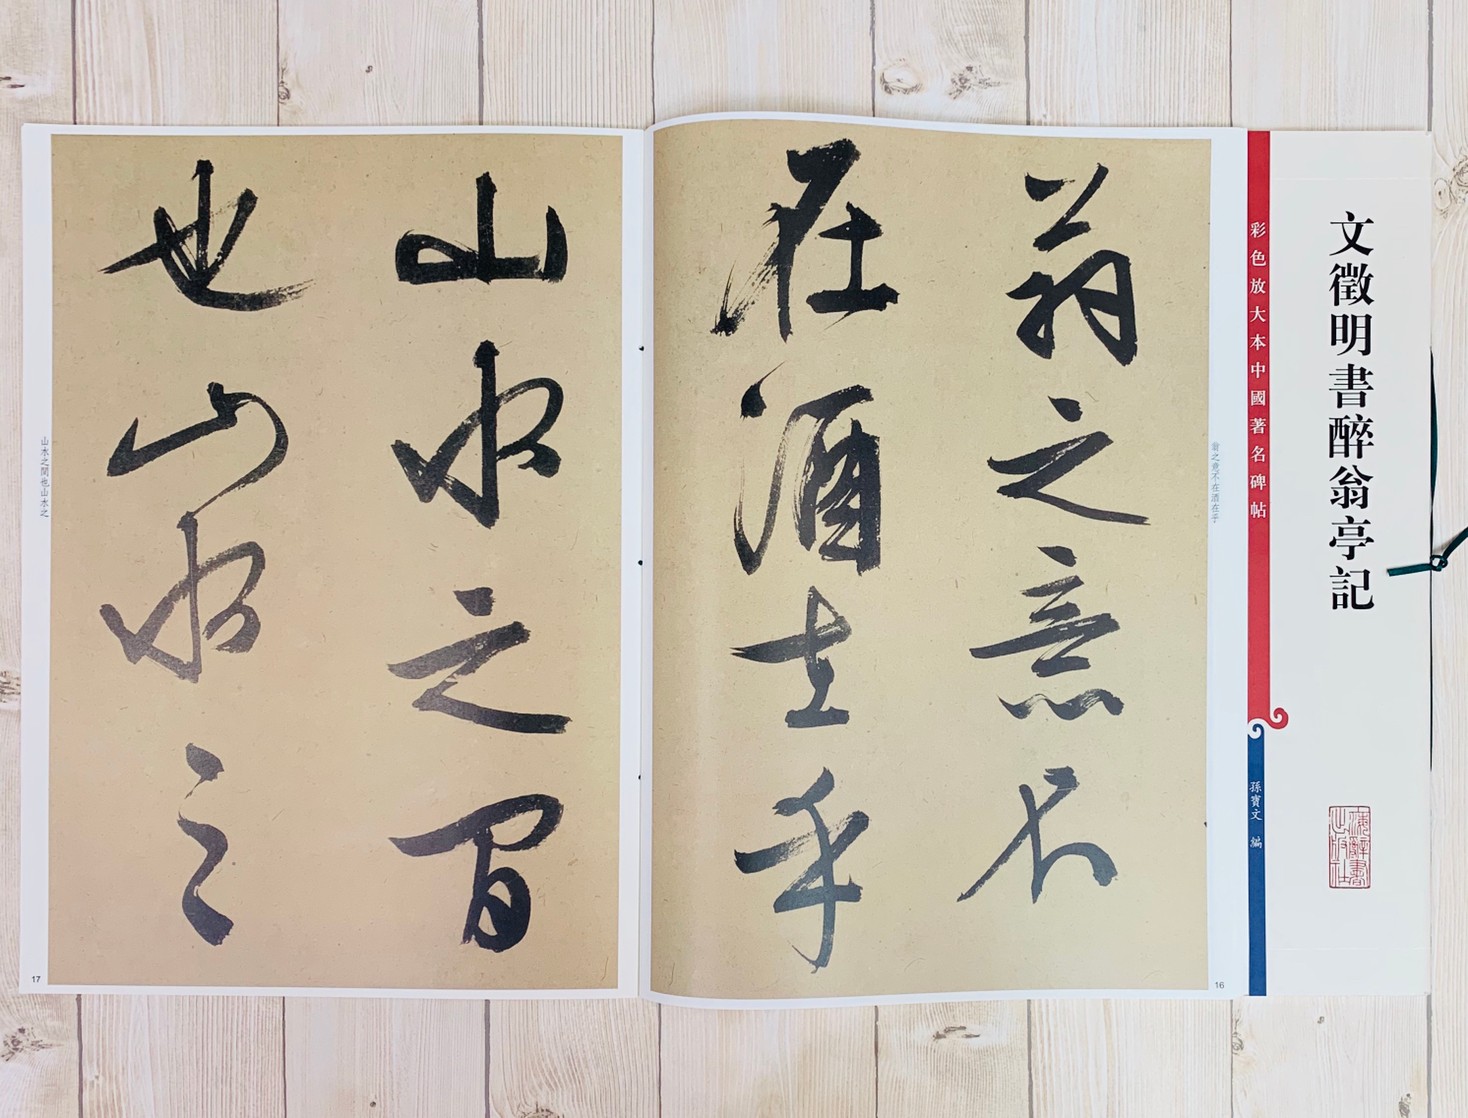 文徵明書醉翁亭記
上海辭書
出版社
彩色放大本中國著名碑帖
孫寶文 編
翁之意不在酒在乎
16
翁之意不
在酒在乎
山水之間
也山水之
山水之間也山水之
17